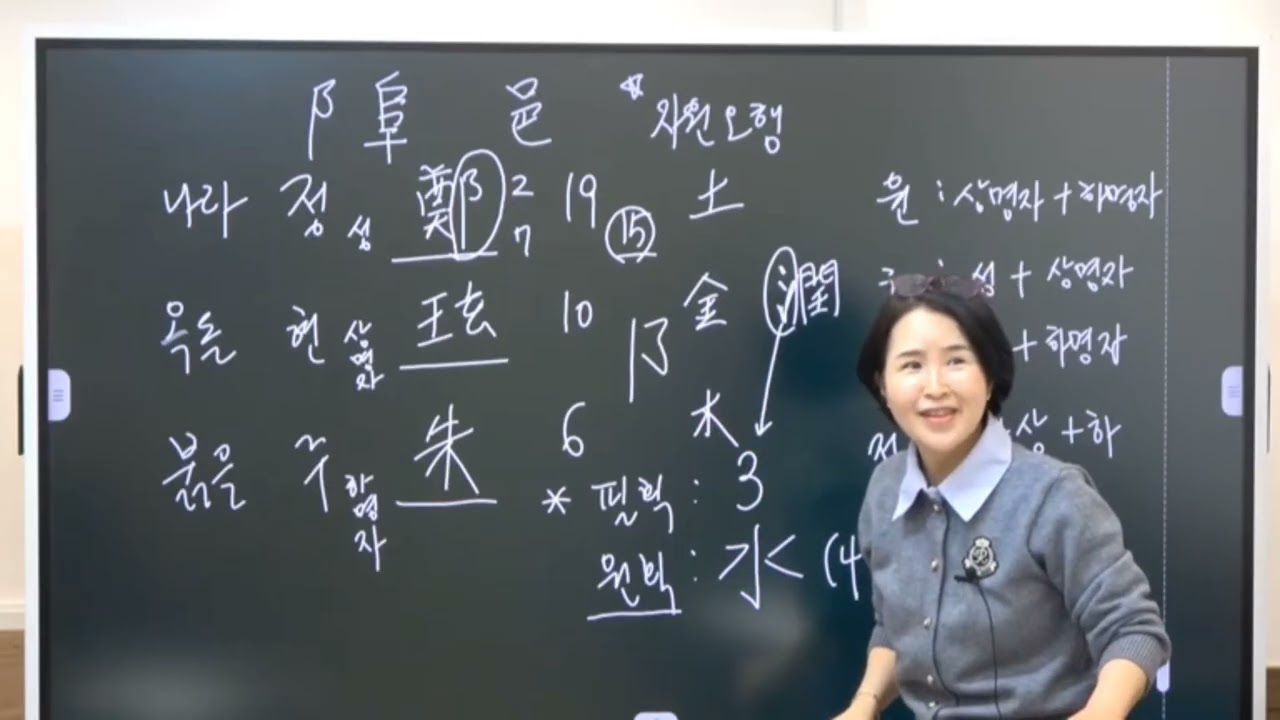 阝 阜 邑 * 자원오행
나라 정 성 鄭 2 7 19 ⑮ 土
옥돌 현 상명자 玹 10 阝 金 潤
붉을 주 하명자 朱 6 木
* 필획 : 3
원획 : 水 (4
원 : 상명자 + 하명자
: 성 + 상명자
+ 하명자
상 + 하